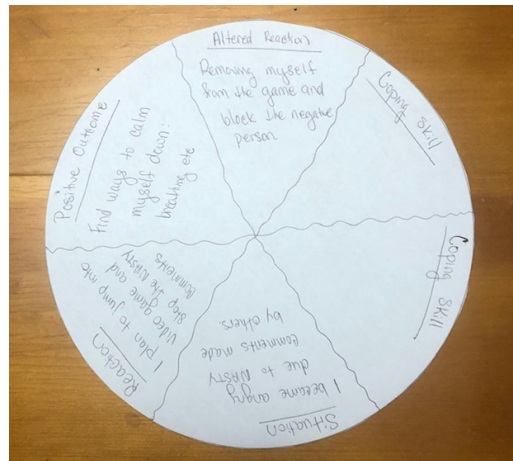 Altered Reaction
Removing myself
from the game and
block the negative
person
Coping Skill
Coping Skill
Situation
I became angry
due to NASTY
comments made
by others.
Reaction
I plan to jump into
video game and
stop the NASTY
comments
Positive Outcome
Find ways to calm
myself down:
breathing etc